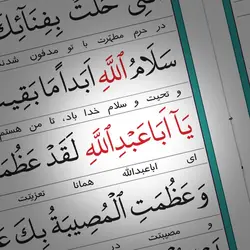 حَلَّتْ بِفِنَائِكَ
در حرم مطهّرت با تو مدفون شدند
سَلَامُ اللَّهِ أَبَداً مَا بَقِيتُ
و تحیت و سلام خدا باد، تا من هستم
يَا أَبَا عَبْدِ اللَّهِ لَقَدْ عَظُمَتِ
ای اباعبدالله همانا تعزیتت
وَ عَظُمَتِ الْمُصِيبَةُ بِكَ عَ
و مصیبتت در